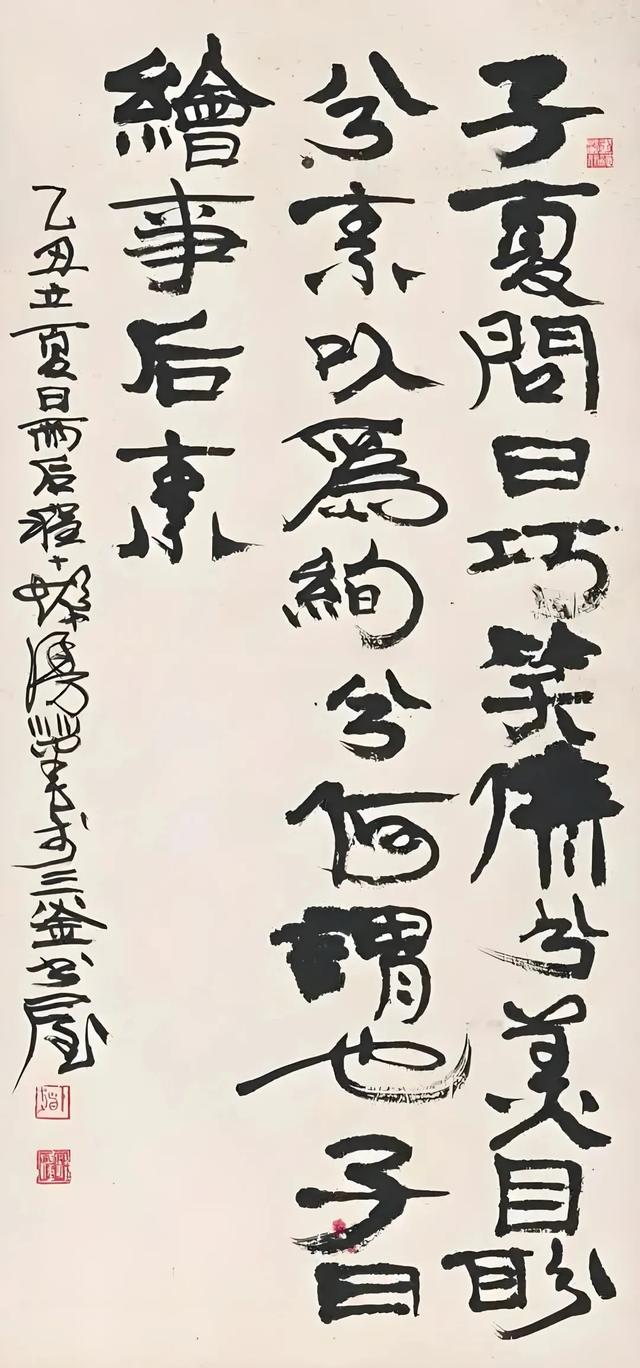 子夏問曰巧笑倩兮美目盼
兮素以爲絢兮何謂也子曰
繪事后素
乙丑立夏日雨后程十髮漫筆於三釜书屋